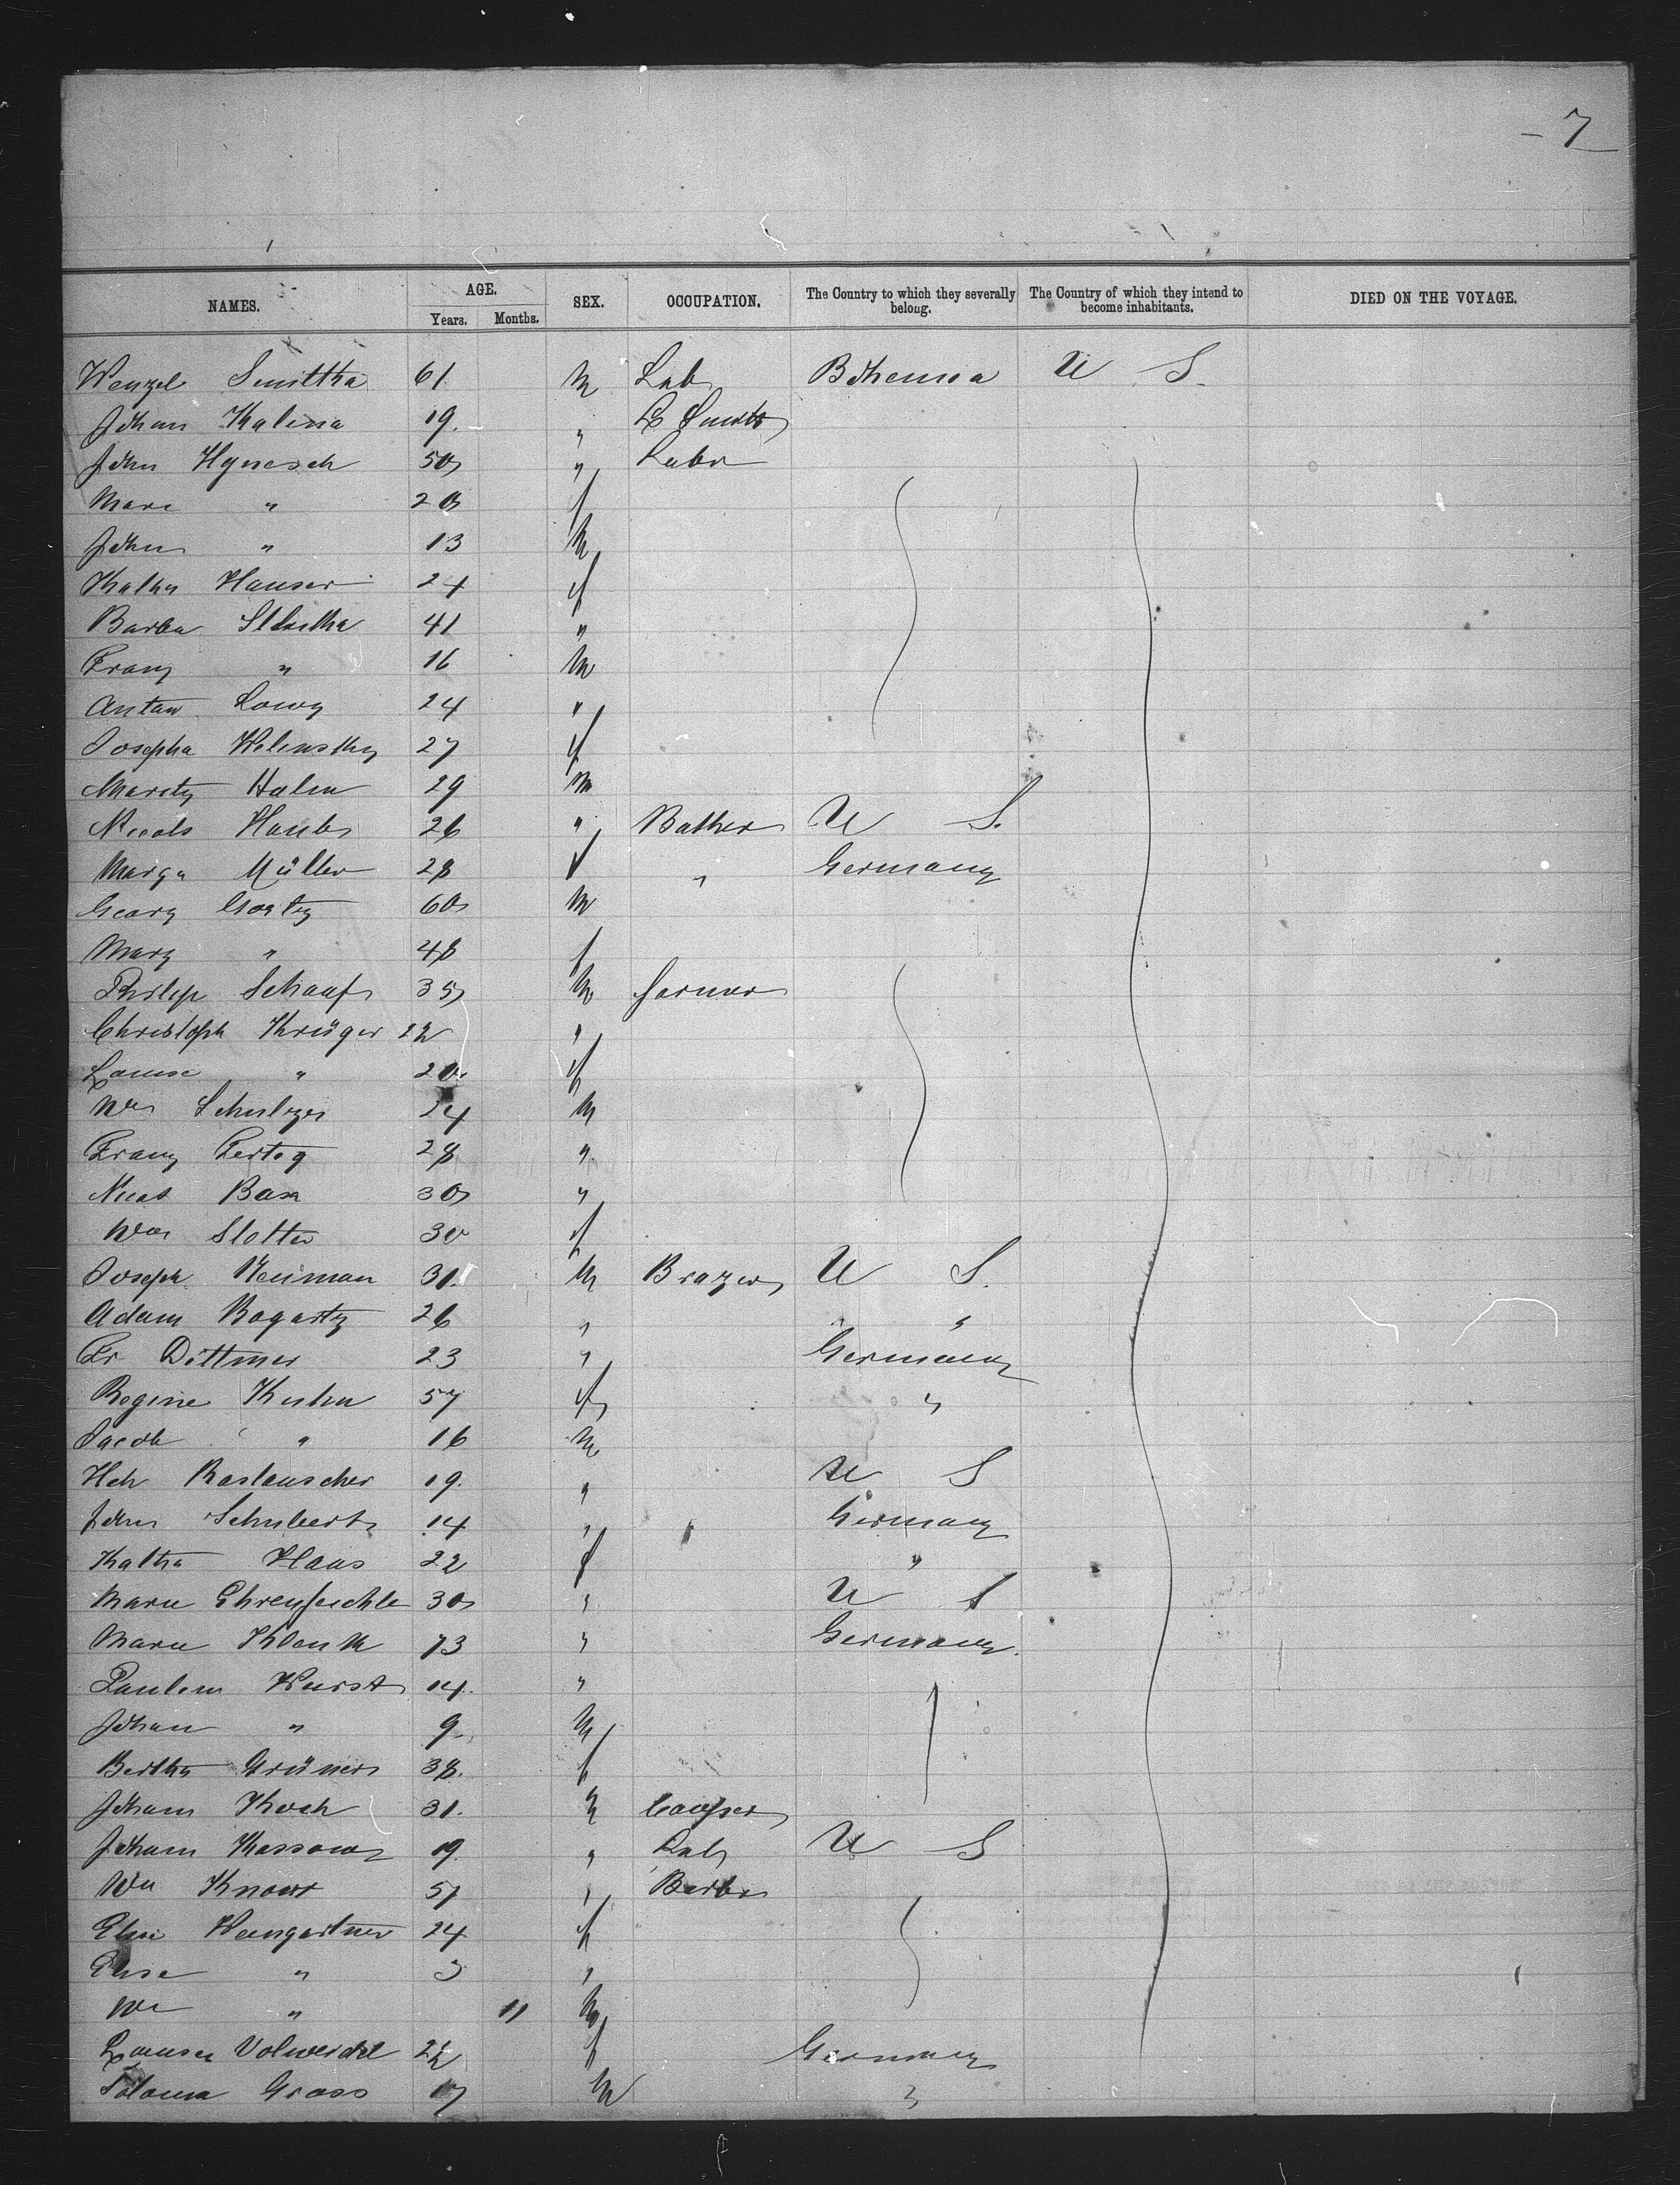 - 7
NAMES. AGE. SEX. OCCUPATION. The Country to which they severally belong. The Country of which they intend to become inhabitants. DIED ON THE VOYAGE.
Years. Months.
Wenzel Smittka 61. M Lab Bohemia U S.
Johan Kalina 19. "
John Hynesch 50 " Labr
Mari " 20 f
John " 13 M
Katha Hauser 24 f
Barba 41 "
Franz " 16 M
Anton Lowy 24 "
Josepha Welensky 27 f
Moritz Halm 29 M
Nicols Haub 26 " U S.
Marga Müller 28 f " Germany
Georg Goetz 60 M
Marg " 48 f
Philip Schaaf 35 M farmer
Christoph Krüger 22 "
Louise " 20. f
Wm 24 M
Franz 28 "
30 "
30 f
Joseph Neuman 31. M U S.
Adam Bogartz 26 " " "
Fr Dittmer 23 " Germany
Regine Kuhn 57 f "
Jacob " 16 M
Hch 19. " U S
John Schubert 14 " Germany
Katha Haas 22 f "
Marie Ehrenfeichle 30 " U S
Marie Klenk 73 " Germany.
Paulin Wurst 14. "
Johan " 9. M
Bertha Grüner 38. f
Johann Koch 31. M
Johann Kassow 19 " Lab U S
Wm Knorr 51 "
Elise Weingartner 24 f
Elise " 3 "
Wm " 11 M
Louisa Volweidel 22 f Germany
Gross 17 M "